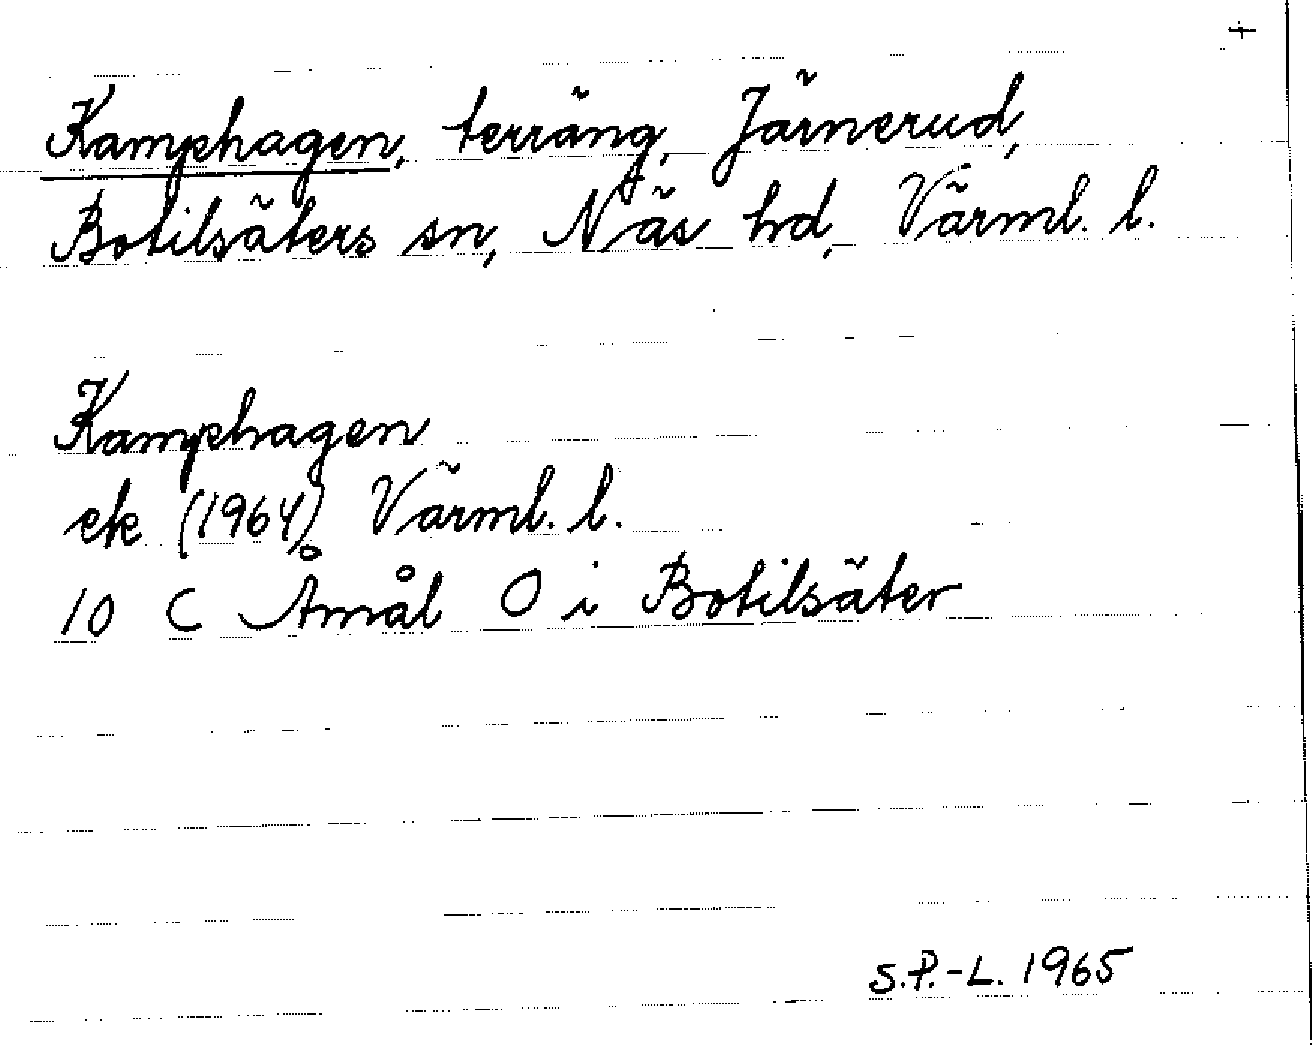 Kamphagen, terräng, Järnerud,
Botilsäters sn, Näs hd, Värml. l.
Kamphagen
ek (1964) Värml. l.
10 C Åmål O i Botilsäter
S.P.-L. 1965